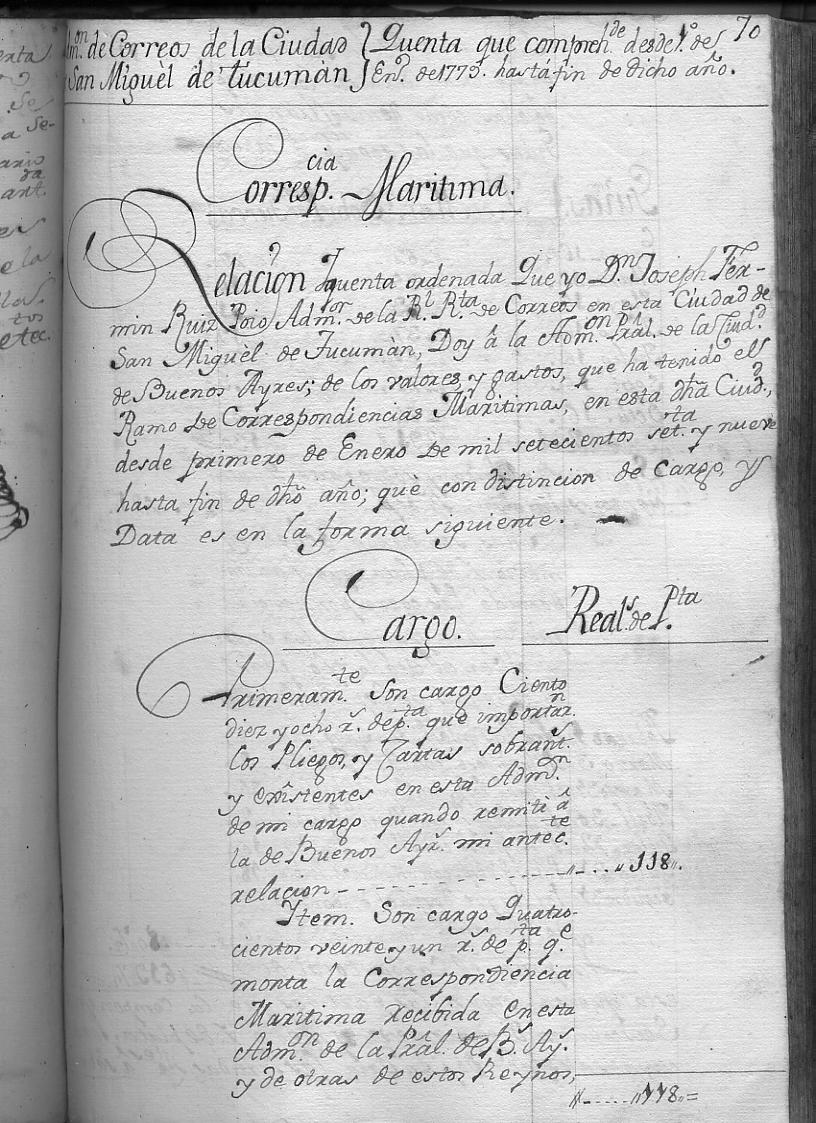 Adm.on de Correos de la Ciudad } Quenta que compreh.de desde 1.o de 70
San Miguèl de tucumàn } En.o de 1779. hasta fin de dicho año.
Corresp.cia Maritima.
Relacion Jquenta ordenada Que yo D.n Joseph Fer-
min Ruiz Poio Adm.or de la R.l R.ta de Correos en esta Ciudad de
San Miguèl de Tucumàn, Doy â la Adm.on Pral. de la Ciud.d
de Buenos Ayres; de los valores, y gastos, que ha tenido el
Ramo de Correspondiencias Maritimas, en esta dha Ciud.,
desde primero de Enero de mil setecientos set.ta y nueve
hasta fin de dho año; què con distincion de Cargo, y
Data es en la forma siguiente.
Cargo. Real.s de P.ta
Primeram.te Son cargo Ciento
diez y ocho r.s de p.ta que importan.
los Pliegos, y Cartas sobrant.s
y existentes en esta Adm.on
de mi cargo quando remiti â
la de Buenos Ay.s mi antec.te
relacion - - - - - - - - - - - - - " - ... " 118 ".
Item. Son cargo Quatro-
cientos veinte y un r.s de p.ta q.e
monta la Correspondiencia
Maritima recibida en esta
Adm.on de la Pral. de B.s Ay.s
y de otras de estos Reynos,
" - .... " 118 " =